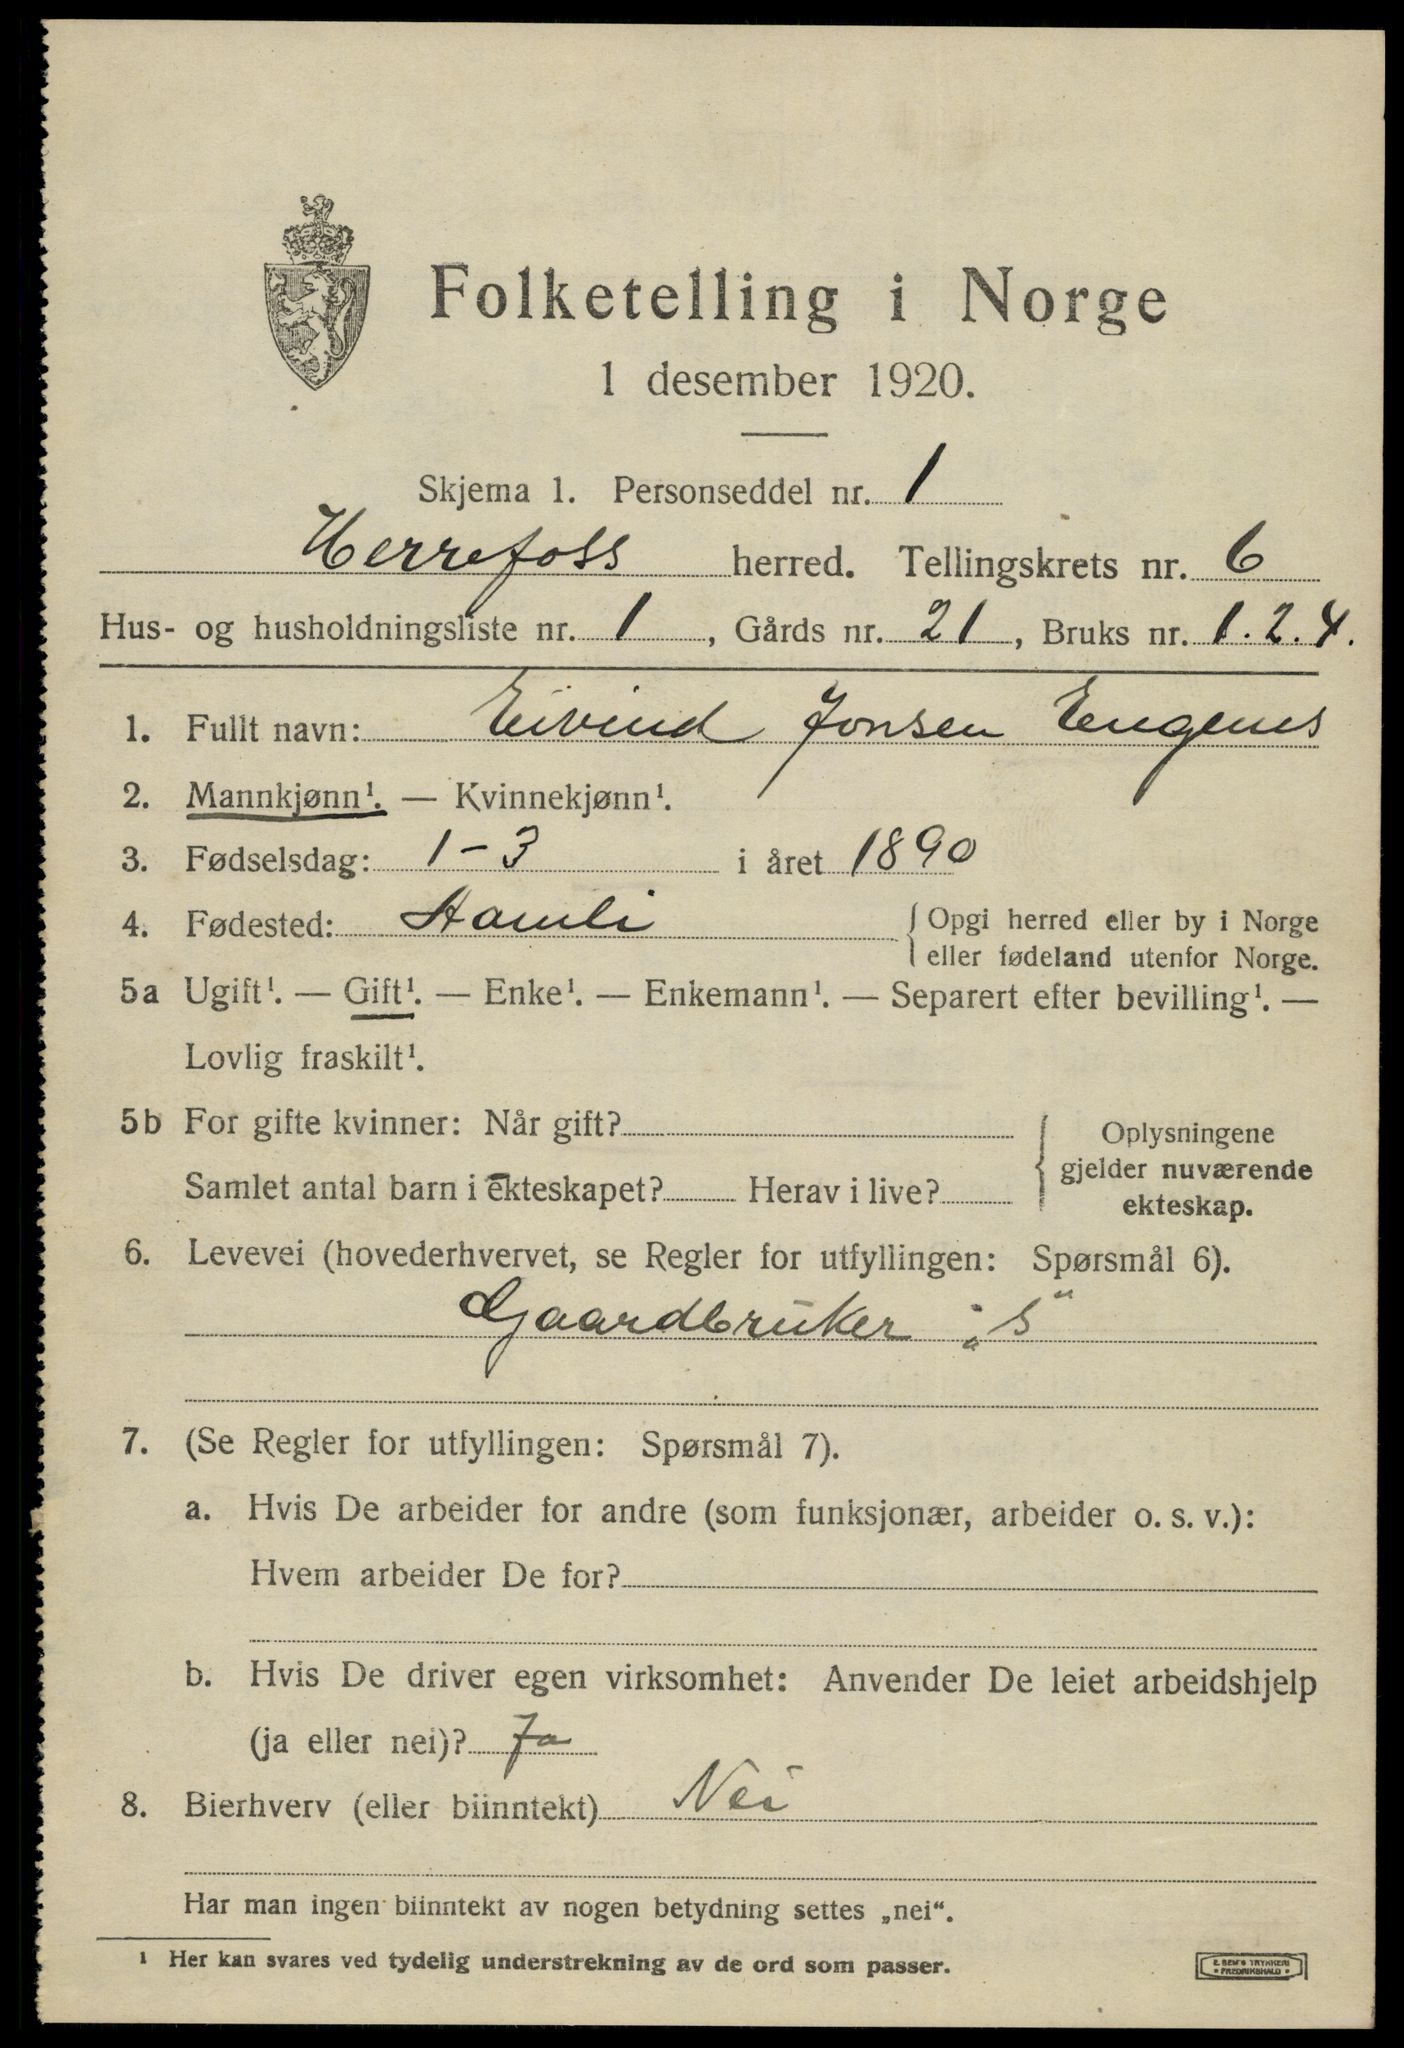 Folketelling i Norge
1 desember 1920.
Skjema 1. Personseddel nr. 1
Herrefoss herred. Tellingskrets nr. 6
Hus- og husholdningsliste nr. 1, Gårds nr. 21, Bruks nr. 1.2.4.
1. Fullt navn: Eivind Jonsen Engenes
2. Mannkjønn¹. — Kvinnekjønn¹.
3. Fødselsdag: 1-3 i året 1890
4. Fødested: Aamli { Opgi herred eller by i Norge
eller fødeland utenfor Norge.
5a Ugift¹. — Gift¹. — Enke¹. — Enkemann¹. — Separert efter bevilling¹. —
Lovlig fraskilt¹.
5b For gifte kvinner: Når gift?
Samlet antal barn i ekteskapet? Herav i live?
Oplysningene
gjelder nuværende
ekteskap.
6. Levevei (hovederhvervet, se Regler for utfyllingen: Spørsmål 6).
Gaardbruker „S“
7. (Se Regler for utfyllingen: Spørsmål 7).
a. Hvis De arbeider for andre (som funksjonær, arbeider o. s. v.):
Hvem arbeider De for?
b. Hvis De driver egen virksomhet: Anvender De leiet arbeidshjelp
(ja eller nei)? Ja
8. Bierhverv (eller biinntekt) Nei
Har man ingen biinntekt av nogen betydning settes „nei“.
¹ Her kan svares ved tydelig understrekning av de ord som passer.
E. SEM'S TRYKKERI
* FREDRIKSHALD *